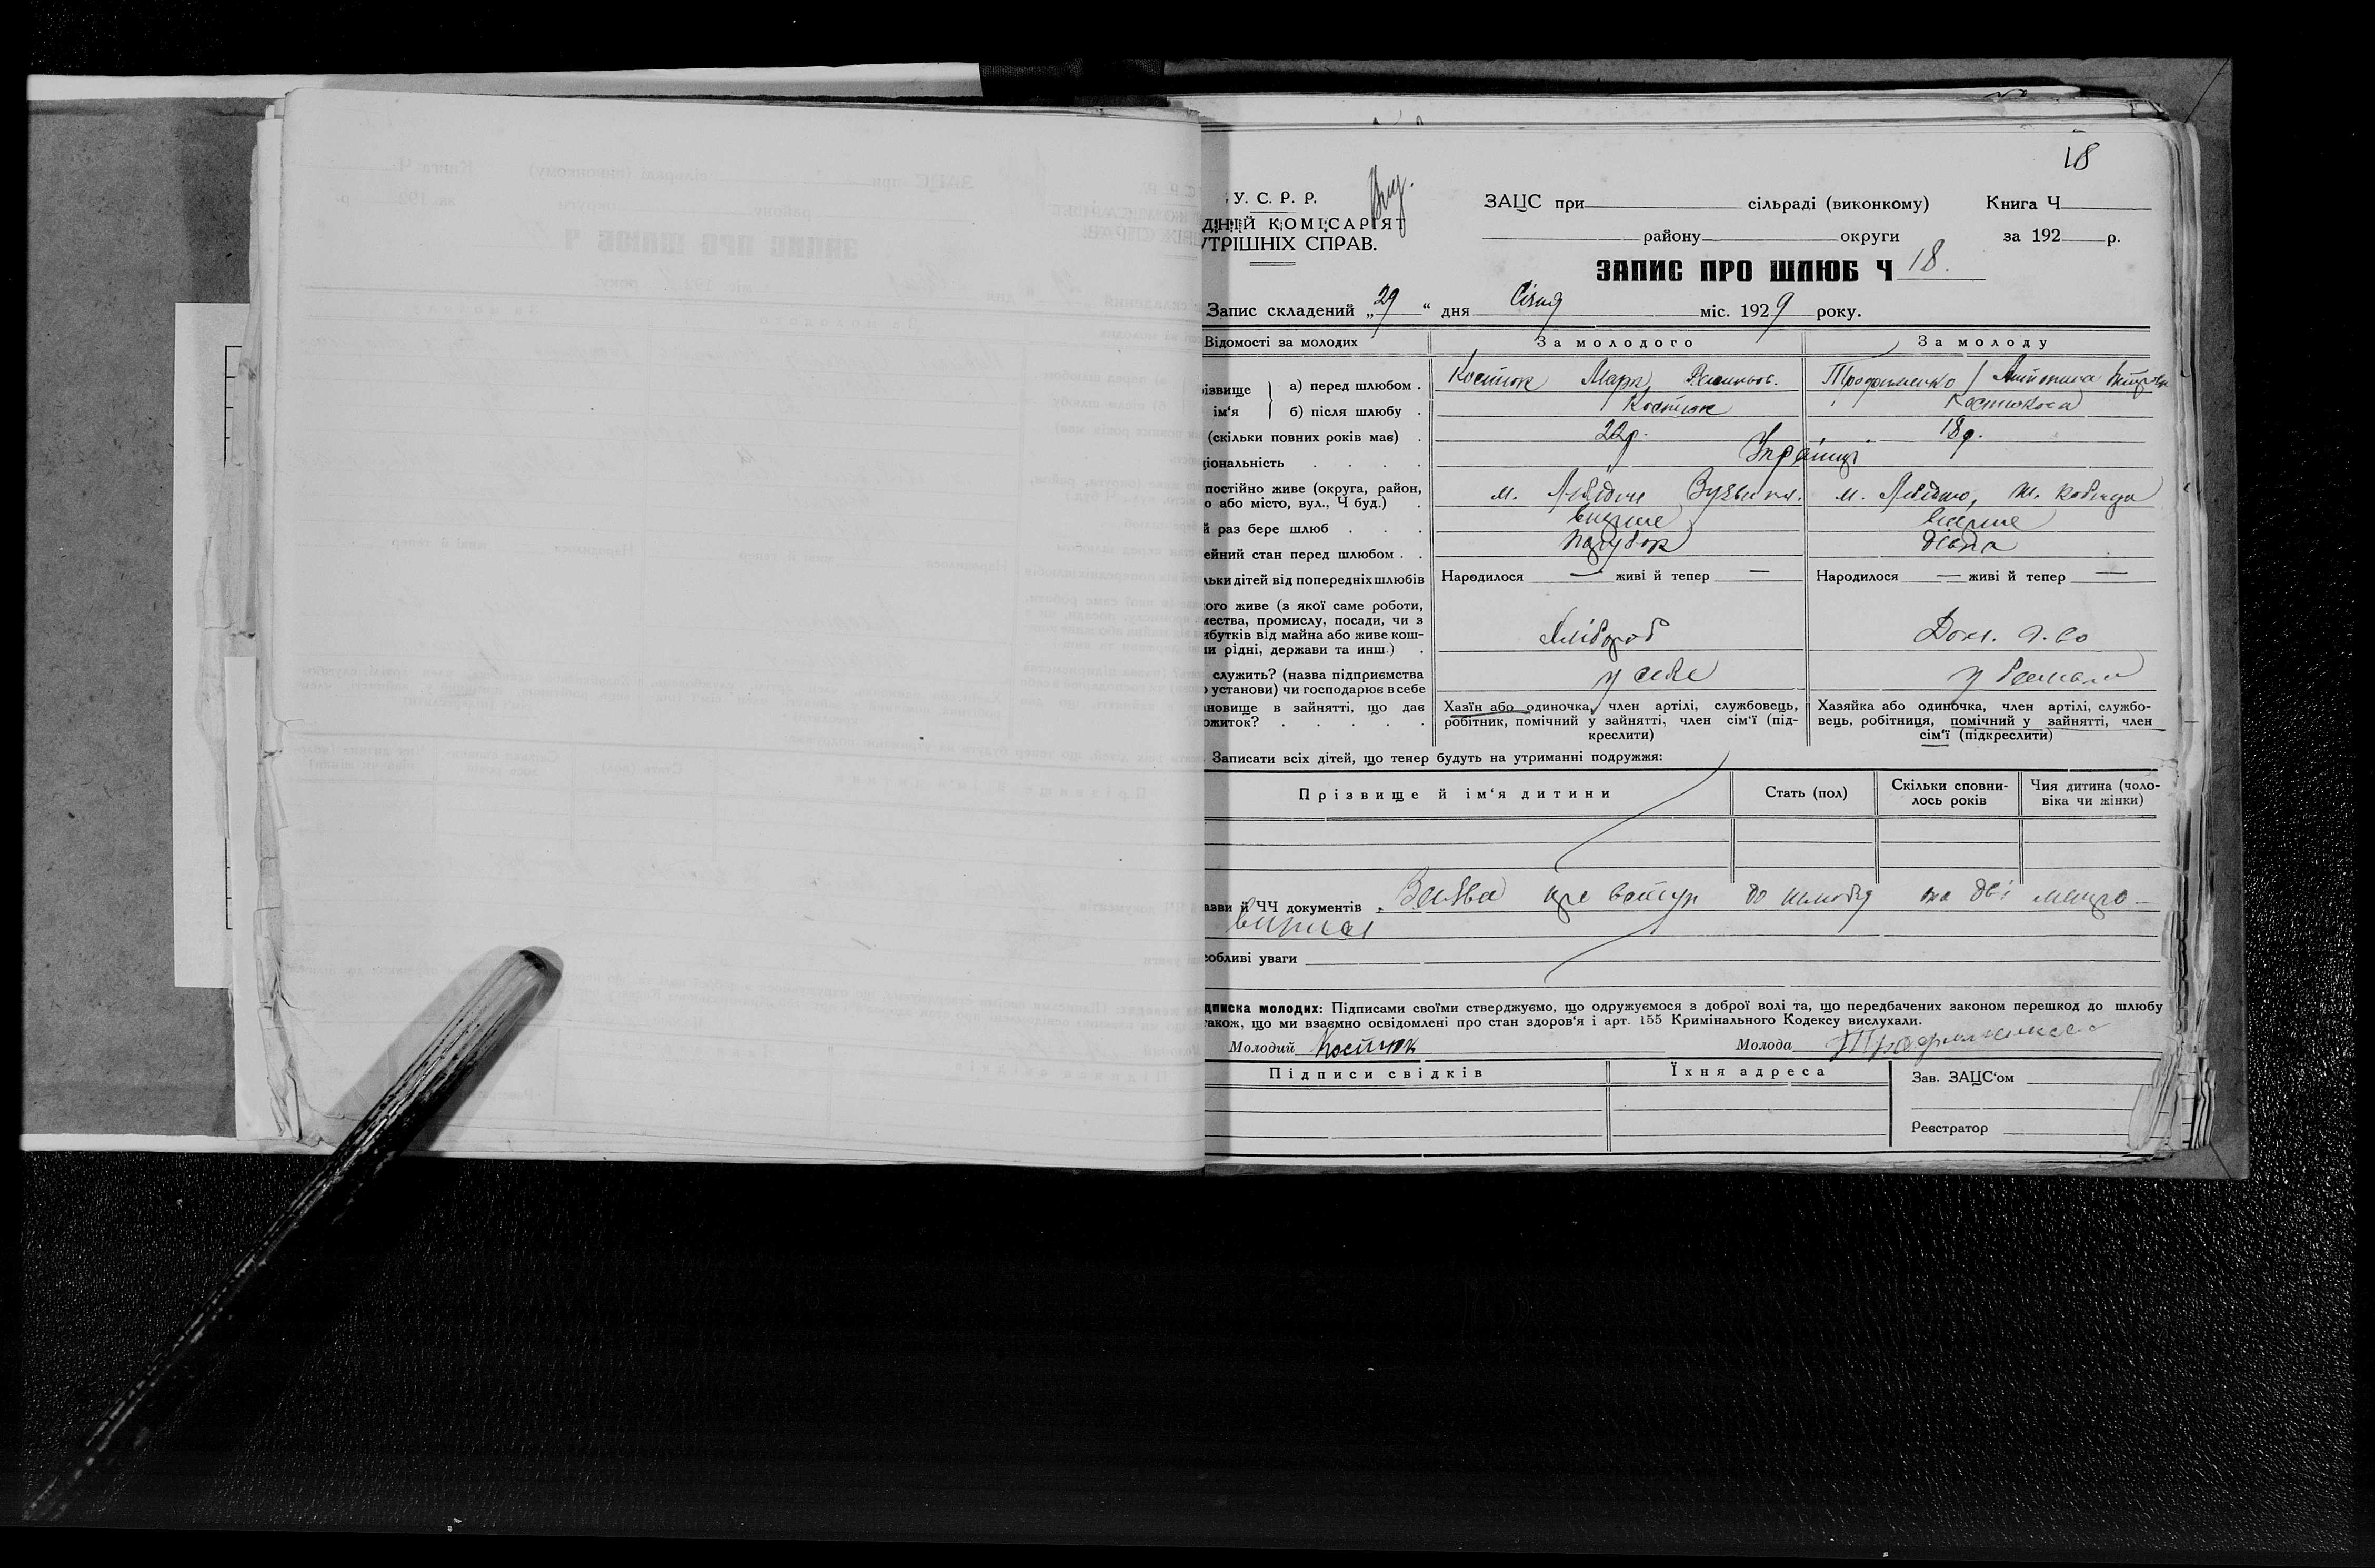 18
У. С. Р. Р.
ДНІЙ КОМІСАРІЯТ
УТРІШНІХ СПРАВ.
ЗАЦС при сільраді (виконкому) Книга Ч
району округи за 192 р.
ЗАПИС ПРО ШЛЮБ Ч 18.
Запис складений „29“ дня Січня міс. 1929 року.
Відомості за молодих За молодого За молоду
ізвище а) перед шлюбом . Костюк Марк
ім‘я б) після шлюбу . Костюк Костюкова
(скільки повних років має) . 22р. 18р.
ціональність . . . . Українці
постійно живе (округа, район,
о або місто, вул., Ч буд.) . м. м.
й раз бере шлюб . . . вперше вперше
ейний стан перед шлюбом . . парубок дівка
льки дітей від попередніх шлюбів Народилося — живі й тепер — Народилося — живі й тепер —
ого живе (з якої саме роботи,
мества, промислу, посади, чи з
ибутків від майна або живе кош-
ми рідні, держави та инш.) . Хлібороб Дом. г-во
служить? (назва підприємства
о установи) чи господарює в себе у себе у
новище в зайнятті, що дає
ожиток? . . . . .
Хазїн або одиночка, член артілі, службовець,
робітник, помічний у зайнятті, член сім‘ї (під-
креслити)
Хазяйка або одиночка, член артілі, службо-
вець, робітниця, помічний у зайнятті, член
сім‘ї (підкреслити)
Записати всіх дітей, що тепер будуть на утриманні подружжя:
Прізвище й ім‘я дитини Стать (пол) Скільки сповни-
лось років Чия дитина (чоло-
віка чи жінки)
азви й ЧЧ документів . Заява про вступ до шлюбу та дві метро-
виписі
собливі уваги
дписка молодих: Підписами своїми стверджуємо, що одружуємося з доброї волі та, що передбачених законом перешкод до шлюбу
також, що ми взаємно освідомлені про стан здоров‘я і арт. 155 Кримінального Кодексу вислухали.
Молодий Костюк Молода
Підписи свідків Їхня адреса Зав. ЗАЦС‘ом
Реєстратор